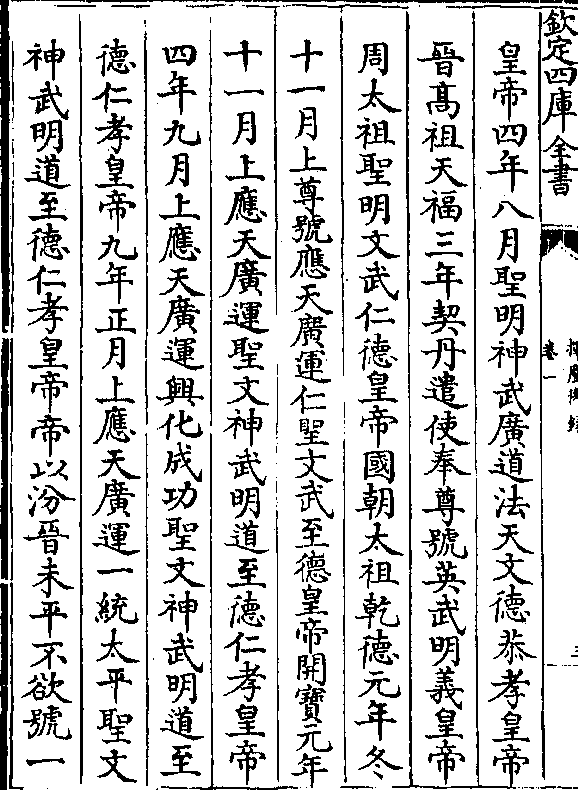 欽定四庫全書
揮麈後錄
卷一
三
皇帝四年八月聖明神武廣道法天文德恭孝皇帝
晉髙祖天福三年契丹遣使奉尊號英武明義皇帝
周太祖聖明文武仁德皇帝國朝太祖乾德元年冬
十一月上尊號應天廣運仁聖文武至德皇帝開寶元年
十一月上應天廣運聖文神武明道至德仁孝皇帝
四年九月上應天廣運興化成功聖文神武明道至
德仁孝皇帝九年正月上應天廣運一統太平聖文
神武明道至德仁孝皇帝帝以汾晉未平不欲號一